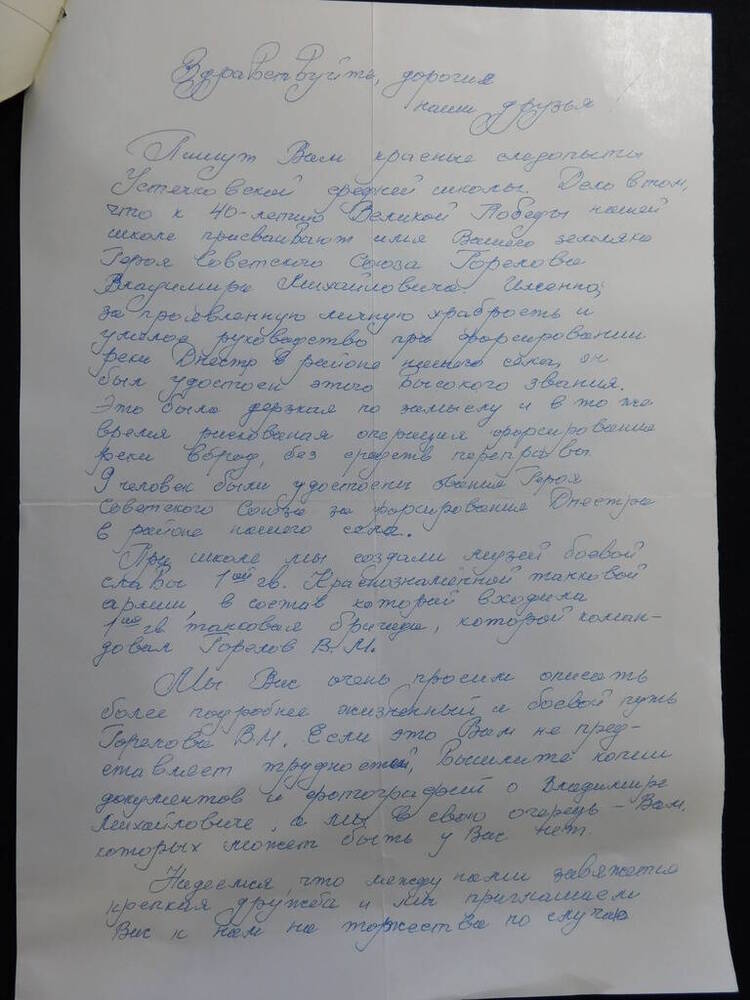 Здравствуйте, дорогие
наши друзья!
Пишут Вам красные следопыты
Устечковской средней школы. Дело в том,
что к 40-летию Великой Победы нашей
школе присваивают имя Вашего земляка
Героя Советского Союза Горелова
Владимира Михайловича. Именно,
за проявленную личную храбрость и
умелое руководство при форсировании
реки Днестр в районе нашего села, он
был удостоен этого высокого звания.
Это была дерзкая по замыслу и в то же
время рискованая операция форсирования
реки вброд, без средств переправы.
9 человек были удостоены звания Героя
Советского Союза за форсирование Днестра
в районе нашего села.
При школе мы создали музей боевой
славы 1ой гв. Краснознамённой танковой
армии, в состав которой входила
1ая гв. танковая бригада, которой коман-
довал Горелов В.М.
Мы Вас очень просим описать
более подробнее жизненный и боевой путь
Горелова В.М. Если это Вам не пред-
ставляет трудностей, вышлите копии
документов и фотографий о Владимире
Михайловиче, а мы в свою очередь – Вам,
которых может быть у Вас нет.
Надеемся, что между нами завяжется
крепкая дружба и мы приглашаем
Вас к нам на торжества по случаю